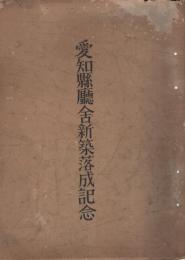 愛知縣廳舎新築落成記念